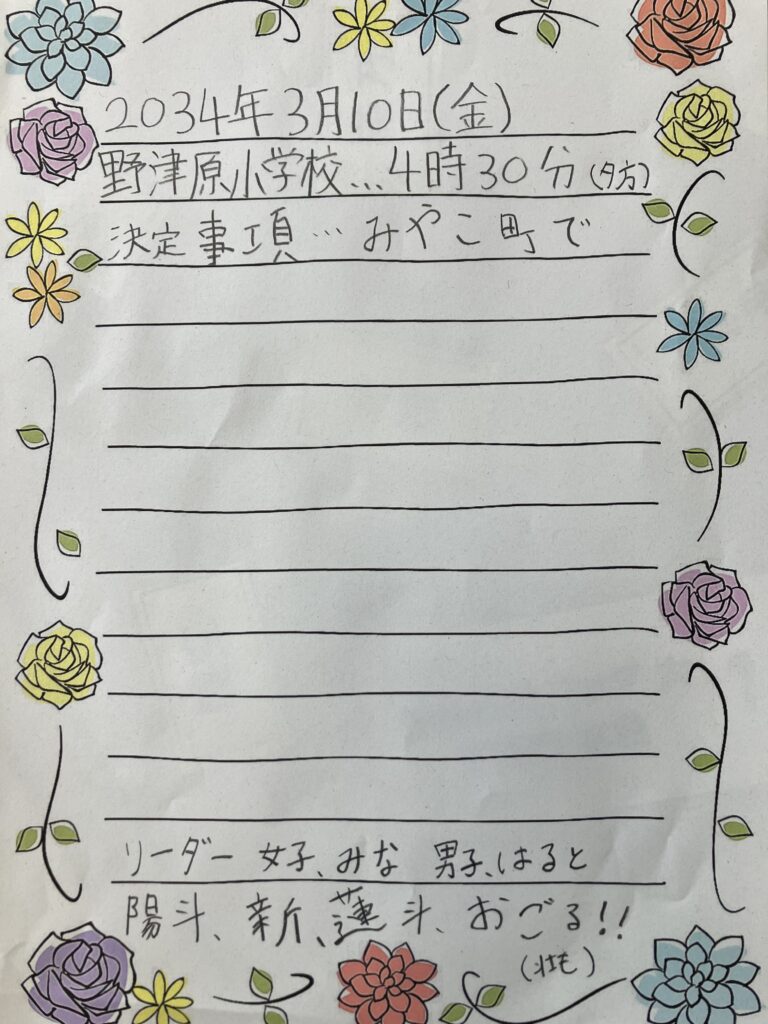 2034年3月10日(金)
野津原小学校…4時30分(夕方)
決定事項…みやこ町で
リーダー 女子、みな 男子、はると
陽斗、新、蓮斗、おごる!!